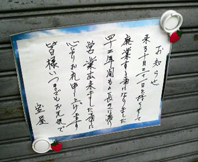 お知らせ
来る十月三十一日を持ちまして
廃業する事になりました
四十二年間もの長きに
営業出来ました事に
心よりお礼申し上げます
皆様いつまでもお元気で
店主